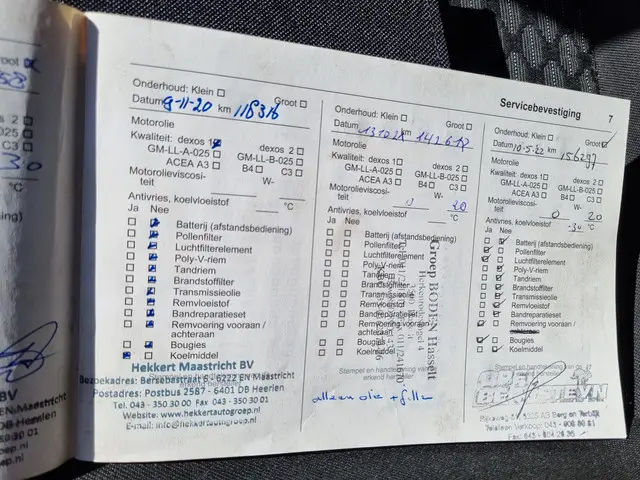 Servicebevestiging
7
Onderhoud: Klein
Groot
Datum 9-11-20 km 118316
Motorolie
Kwaliteit: dexos 1
dexos 2
GM-LL-A-025
GM-LL-B-025
ACEA A3
B4
C3
Motorolieviscosi-
teit
W-
Antivries, koelvloeistof
°C
Ja Nee
Batterij (afstandsbediening)
Pollenfilter
Luchtfilterelement
Poly-V-riem
Tandriem
Brandstoffilter
Transmissieolie
Remvloeistof
Bandreparatieset
Remvoering vooraan /
achteraan
Bougies
Koelmiddel
Hekkert Maastricht BV
Bezoekadres: Bersebastraat 6 - 6222 EN Maastricht
Postadres: Postbus 2587 - 6401 DB Heerlen
Tel. 043 - 350 30 00 Fax 043 - 350 30 01
Website: www.hekkertautogroep.nl
E-mail: info@hekkertautogroep.nl
Onderhoud: Klein
Groot
Datum
km
Motorolie
Kwaliteit: dexos 1
dexos 2
GM-LL-A-025
GM-LL-B-025
ACEA A3
B4
C3
Motorolieviscosi-
teit
W-
0 20
Antivries, koelvloeistof
°C
Ja Nee
Batterij (afstandsbediening)
Pollenfilter
Luchtfilterelement
Poly-V-riem
Tandriem
Brandstoffilter
Transmissieolie
Remvloeistof
Bandreparatieset
Remvoering vooraan /
achteraan
Bougies
Koelmiddel
Groep BODEN Hasselt
Stempel en handtekening van
erkend hersteller
alleen olie + filter
Onderhoud: Klein
Groot
Datum 10-5-22 km 156297
Motorolie
Kwaliteit: dexos 1
dexos 2
GM-LL-A-025
GM-LL-B-025
ACEA A3
B4
C3
Motorolieviscosi-
teit
W-
0 20
Antivries, koelvloeistof
-34 °C
Ja Nee
Batterij (afstandsbediening)
Pollenfilter
Luchtfilterelement
Poly-V-riem
Tandriem
Brandstoffilter
Transmissieolie
Remvloeistof
Bandreparatieset
Remvoering vooraan /
Bougies
Koelmiddel